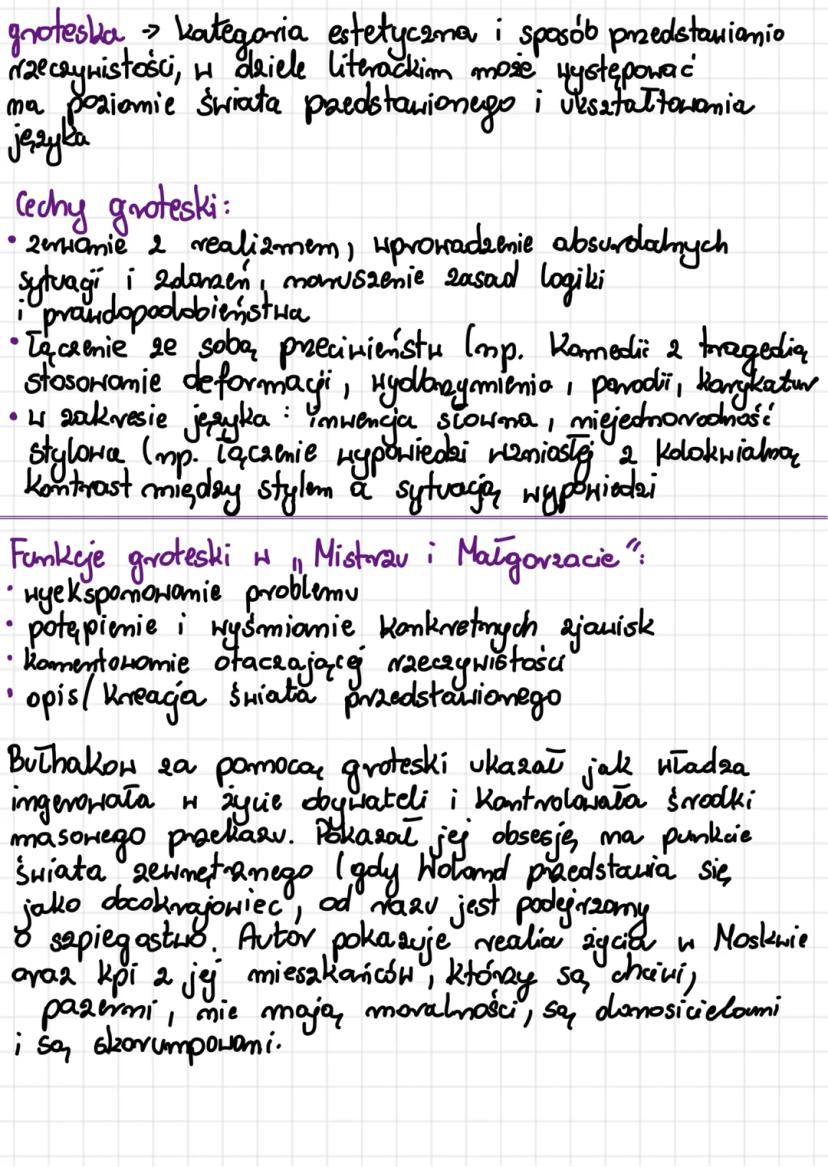 groteska → kategoria estetyczna i sposób przedstawiania
rzeczywistości, w dziele literackim może występować
na poziomie świata przedstawionego i ukształtowania
języka
Cechy groteski:
• zerwanie z realizmem, wprowadzenie absurdalnych
sytuacji i zdarzeń, naruszenie zasad logiki
i prawdopodobieństwa
• łączenie ze sobą przeciwieństw (np. komedii z tragedią
stosowanie deformacji, wyolbrzymienia, parodii, karykatur
• w zakresie języka: inwencja słowna, niejednorodność
stylowa (np. łączenie wypowiedzi wzniosłej z kolokwialną
kontrast między stylem a sytuacją wypowiedzi
Funkcje groteski w „Mistrzu i Małgorzacie":
• wyeksponowanie problemu
• potępienie i wyśmianie konkretnych zjawisk
• komentowanie otaczającej rzeczywistości
• opis/kreacja świata przedstawionego
Bułhakow za pomocą groteski ukazał jak władza
ingerowała w życie obywateli i kontrolowała środki
masowego przekazu. Pokazał jej obsesję na punkcie
świata zewnętrznego (gdy Woland przedstawia się
jako obcokrajowiec, od razu jest podejrzany
o szpiegostwo. Autor pokazuje realia życia w Moskwie
oraz kpi z jej mieszkańców, którzy są chciwi,
pazerni, nie mają moralności, są donosicielami
i są skorumpowani.